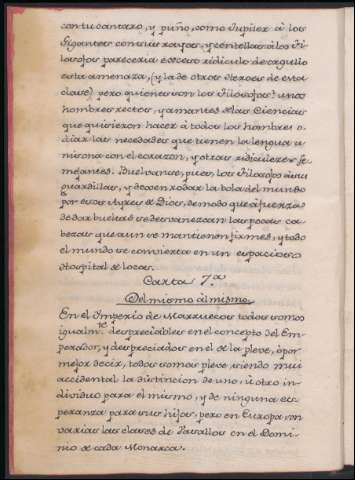 con tu cantaro, y puño, como Jupiter á los
Gigantes con sus rayos, y centellas á los Fi-
losofos pareceria exceso ridiculo de orgullo
esta amenaza, (y la de otros Hexoes de esta
clase) pero quienes son los Filosofos? unos
hombres rectos, y amantes de las Ciencias
que quisieron hacer á todos los hombres o-
diar las necedades que tienen la lengua u-
nisona con el corazon, y otras ridiculezes se-
mejantes. Buelvanse, pues, los Filosofos á sus
guardillas, y dexen rodar la bola del mundo
por esos Ayres de Dios, de modo que á fuerza
de dar bueltas se desvanezcan las pocas ca-
bezas que aun se mantienen firmes, y todo
el mundo se convierta en un espacioso
Hospital de locos.
Carta 7.ª
Del mismo al mismo.
En el Imperio de Marruecos todos somos
igualm.te despreciables en el concepto del Em-
perador, y despreciados en el de la pleve, ó por
mejor decir, todos somos pleve, siendo mui
accidental la distincion de uno, ú otro in-
dividuo para el mismo, y de ninguna es-
peranza para sus hijos; pero en Europa son
varias las clases de Vasallos en el Domi-
nio de cada Monarca.